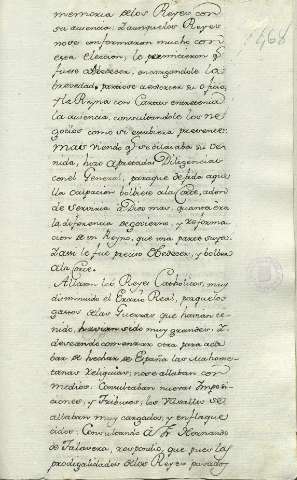 memoria p.r los Reyes con
su ausencia. I aunque los Reyes
no se conformaron mucho con
esta eleccion, le permitieron q.e
fuese à obedecer, encargandole la
brevedad, para volver à exercer su oficio,
I la Reyna con Cartas entretenia
la ausencia, consultandole los ne-
gocios como si estubiera presente:
mas viendo q.e se dilataba su ve-
nida, hizo apretadas Diligencias
con el General, para que dejada aque-
lla ocupacion bolviese à la Corte, adon-
de serviria à Dios mas, quanto era
la diferencia de govierno, y reforma-
cion de un Reyno, que una parte suya.
I assi le fue preciso obedecer, y bolver
à la Corte.
Allaron los Reyes Catholicos, muy
disminuido el Erario Real, porque los
gastos de las Guerras que havian te-
nido, havian sido muy grandes. I
deseando continuar otra para aca-
bar de hechar de España las Mahome-
tanas Reliquias; no se allaban con
medios. Consultaban nuevas Imposi-
ciones, y Tributos; los Vasallos se
allaban muy cargados, y enflaque-
cidos. Consultando à Fr. Hernando
de Talavera, respondio, que pues las
prodigalidades de los Reyes pasados
168